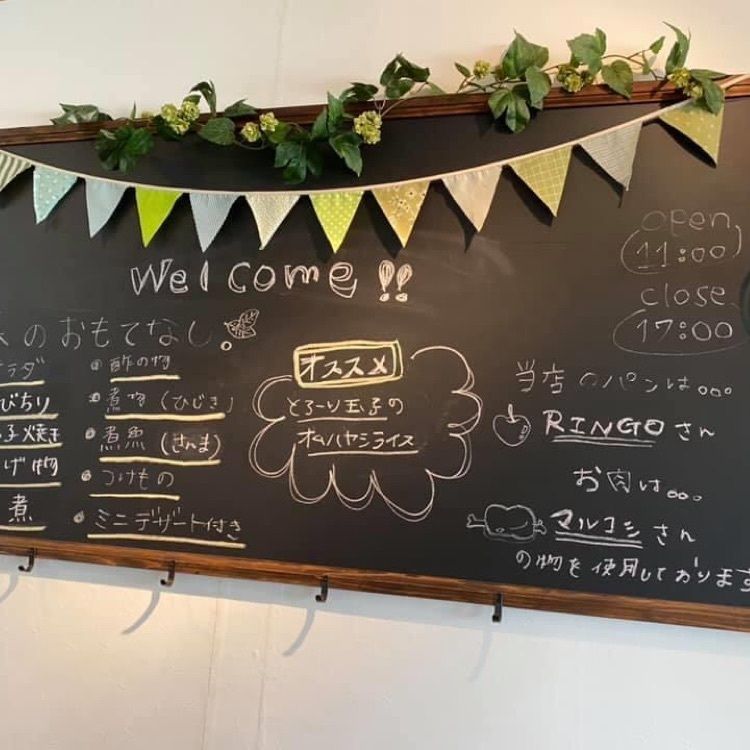 Welcome!!
のおもてなし。
ラダ
びちり
子焼き
げ物
煮
酢の物
煮物(ひじき)
煮魚(さんま)
つけもの
ミニデザート付き
オススメ
とろーり玉子の
オムハヤシライス
open
11:00
close
17:00
当店のパンは。。。
RINGOさん
お肉は。。。
マルヨシさん
の物を使用しております